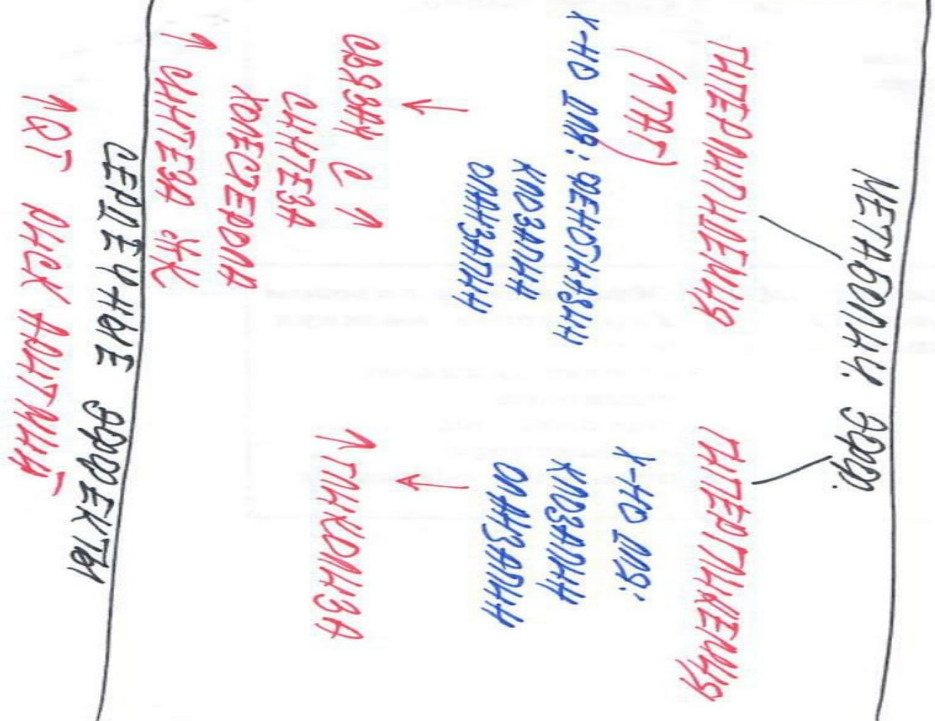 МЕТАБОЛИЧ. ЭФФ.
ГИПЕРЛИПИДЕМИЯ
(↑ТАГ)
Х-НО ДЛЯ: ФЕНОТИАЗИН
КЛОЗАПИН
ОЛАНЗАПИН
СВЯЗАН С ↑
СИНТЕЗА
ХОЛЕСТЕРОЛА
↑ СИНТЕЗА ЖК
ГИПЕРГЛИКЕМИЯ
Х-НО ДЛЯ:
КЛОЗАПИН
ОЛАНЗАПИН
↑ ГЛИКОЛИЗА
СЕРДЕЧНЫЕ ЭФФЕКТЫ
↑QT РИСК АРИТМИЙ